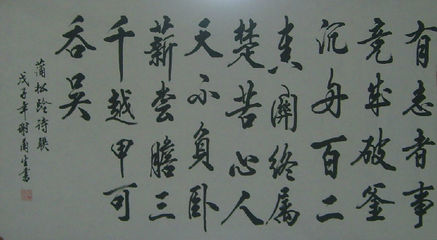 有志者事
竟成破釜
沉舟百二
秦關终属
楚苦心人
天不負卧
薪尝膽三
千越甲可
吞吴
蒲松龄诗联
戊子年